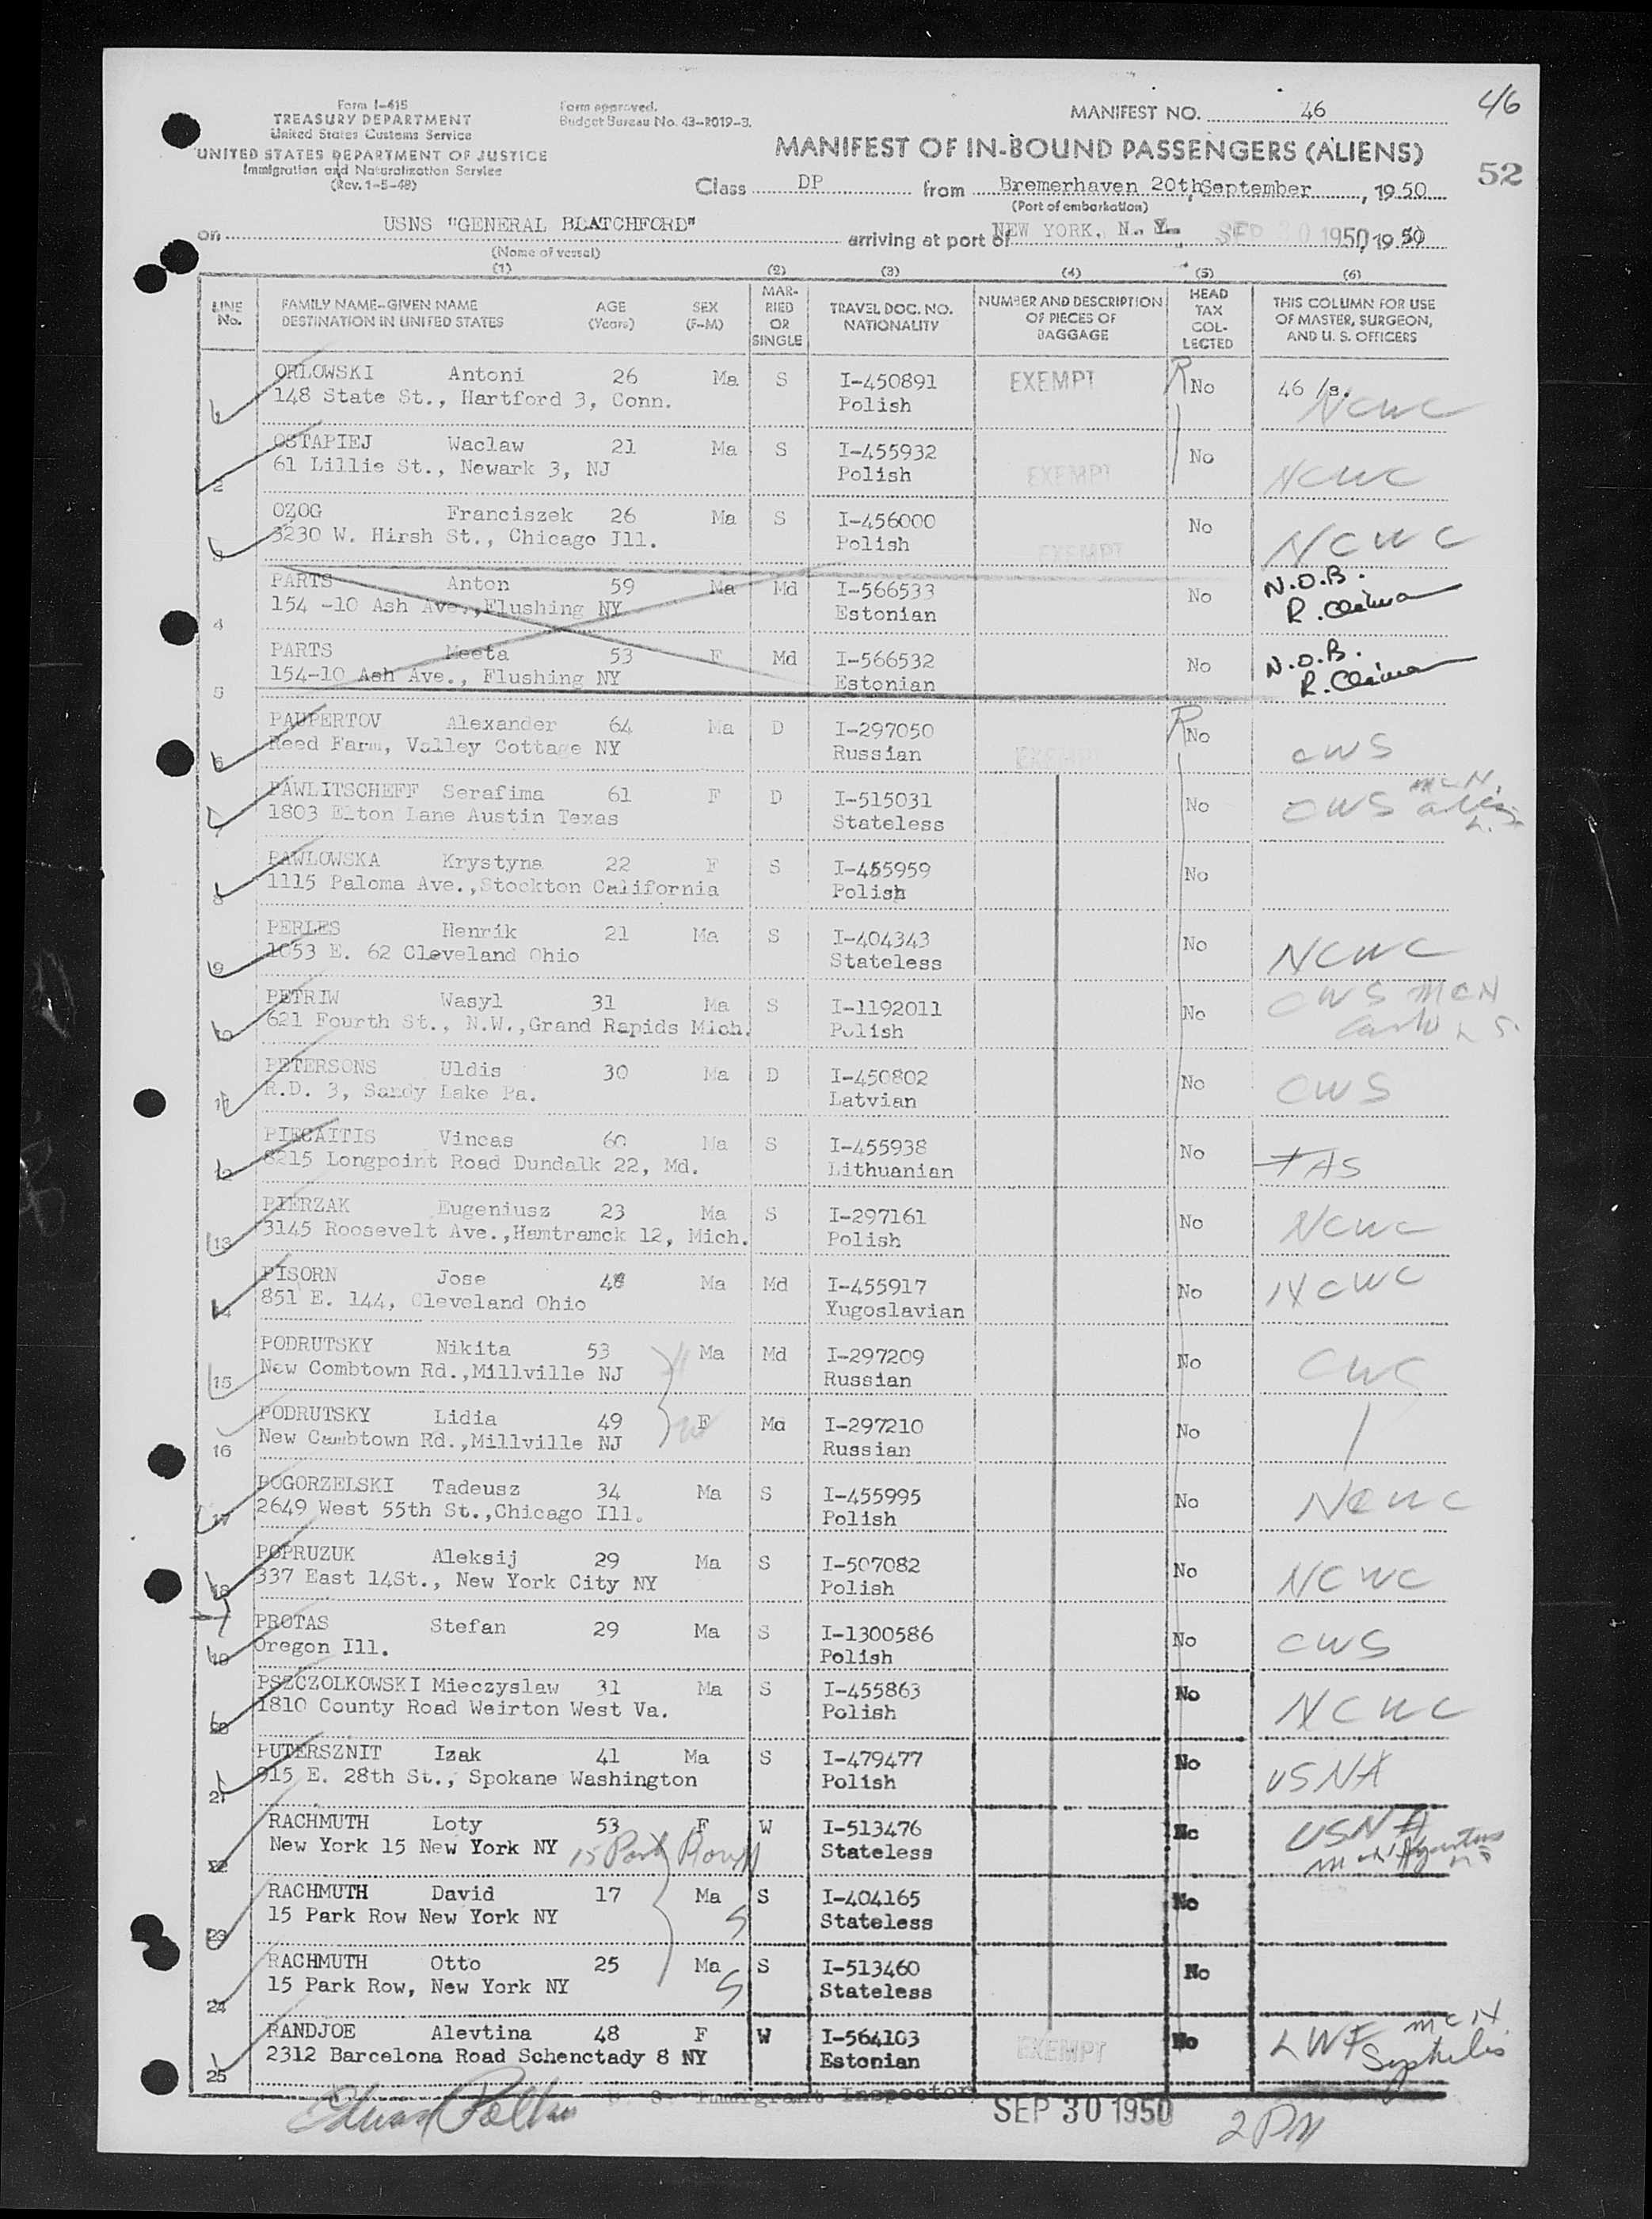 46
Form I-415
TREASURY DEPARTMENT
United States Customs Service
UNITED STATES DEPARTMENT OF JUSTICE
Immigration and Naturalization Service
(Rev. 1-5-48)
Form approved.
Budget Bureau No. 43-R019-3.
MANIFEST NO. 46
MANIFEST OF IN-BOUND PASSENGERS (ALIENS)
52
Class DP from Bremerhaven 20th September, 1950
(Port of embarkation)
on USNS "GENERAL BLATCHFORD" arriving at port of NEW YORK, N. Y. SEP 30 1950, 1950
(Name of vessel)
(1) (2) (3) (4) (5) (6)
LINE No. FAMILY NAME-GIVEN NAME DESTINATION IN UNITED STATES AGE (Years) SEX (F-M) MARRIED OR SINGLE TRAVEL DOC. NO. NATIONALITY NUMBER AND DESCRIPTION OF PIECES OF BAGGAGE HEAD TAX COLLECTED THIS COLUMN FOR USE OF MASTER, SURGEON, AND U. S. OFFICERS
ORLOWSKI Antoni 26 Ma S I-450891 EXEMPT R No 46 /s. NCWC
1 148 State St., Hartford 3, Conn. Polish
OSTAPIEJ Waclaw 21 Ma S I-455932 EXEMPT No NCWC
2 61 Lillie St., Newark 3, NJ Polish
OZOG Franciszek 26 Ma S I-456000 EXEMPT No NCWC
3 3230 W. Hirsh St., Chicago Jll. Polish
PARTS Anton 59 Ma Md I-566533 No N.O.B.
4 154 -10 Ash Ave.,Flushing NY Estonian
PARTS Meeta 53 F Md I-566532 No N.O.B.
5 154-10 Ash Ave., Flushing NY Estonian
PAUPERTOV Alexander 64 Ma D I-297050 EXEMPT R No CWS
6 Reed Farm, Valley Cottage NY Russian
PAWLITSCHEFF Serafima 61 F D I-515031 No CWS McN.
7 1803 Elton Lane Austin Texas Stateless
PAWLOWSKA Krystyna 22 F S I-455959 No
8 1115 Paloma Ave.,Stockton California Polish
PERLES Henrik 21 Ma S I-404343 No NCWC
9 1053 E. 62 Cleveland Ohio Stateless
PETRIW Wasyl 31 Ma S I-1192011 No CWS McN
10 621 Fourth St., N.W.,Grand Rapids Mich. Polish
PETERSONS Uldis 30 Ma D I-450802 No CWS
11 R.D. 3, Sandy Lake Pa. Latvian
PIECAITIS Vincas 60 Ma S I-455938 No TAS
12 8215 Longpoint Road Dundalk 22, Md. Lithuanian
PIERZAK Eugeniusz 23 Ma S I-297161 No NCWC
13 3145 Roosevelt Ave.,Hamtramck 12, Mich. Polish
PISORN Jose 48 Ma Md I-455917 No NCWC
14 851 E. 144, Cleveland Ohio Yugoslavian
PODRUTSKY Nikita 53 H Ma Md I-297209 No CWS
15 New Combtown Rd.,Millville NJ Russian
PODRUTSKY Lidia 49 W F Md I-297210 No
16 New Cambtown Rd.,Millville NJ Russian
POGORZELSKI Tadeusz 34 Ma S I-455995 No NCWC
17 2649 West 55th St.,Chicago Ill. Polish
POPRUZUK Aleksij 29 Ma S I-507082 No NCWC
18 337 East 14St., New York City NY Polish
PROTAS Stefan 29 Ma S I-1300586 No CWS
19 Oregon Ill. Polish
PSZCZOLKOWSKI Mieczyslaw 31 Ma S I-455863 No NCWC
20 1810 County Road Weirton West Va. Polish
PUTERSZNIT Izak 41 Ma S I-479477 No USNA
21 915 E. 28th St., Spokane Washington Polish
RACHMUTH Loty 53 F W I-513476 No USNA
22 New York 15 New York NY 15 Park Row Stateless
RACHMUTH David 17 Ma S I-404165 No
23 15 Park Row New York NY S Stateless
RACHMUTH Otto 25 Ma S I-513460 No
24 15 Park Row, New York NY S Stateless
RANDJOE Alevtina 48 F W I-564103 EXEMPT No LWF McN Syphilis
25 2312 Barcelona Road Schenctady 8 NY Estonian
U. S. Immigrant Inspector SEP 30 1950 2 PM